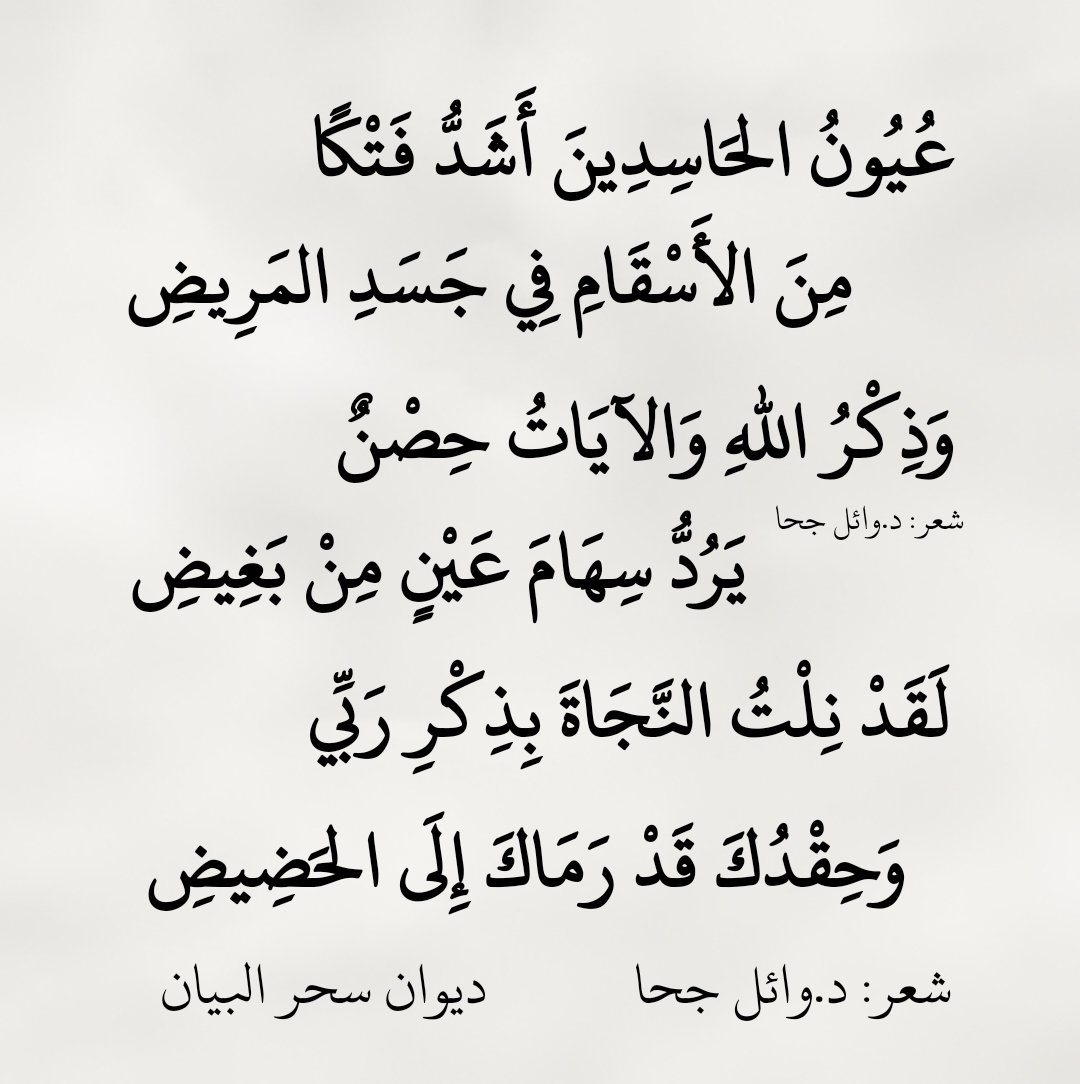 عُيُونُ الحَاسِدِينَ أَشَدُّ فَتْكًا
مِنَ الأَسْقَامِ فِي جَسَدِ المَرِيضِ
وَذِكْرُ اللهِ وَالآيَاتُ حِصْنٌ
شعر: د.وائل جحا
يَرُدُّ سِهَامَ عَيْنٍ مِنْ بَغِيضِ
لَقَدْ نِلْتُ النَّجَاةَ بِذِكْرِ رَبِّي
وَحِقْدُكَ قَدْ رَمَاكَ إِلَى الحَضِيضِ
شعر: د.وائل جحا ديوان سحر البيان